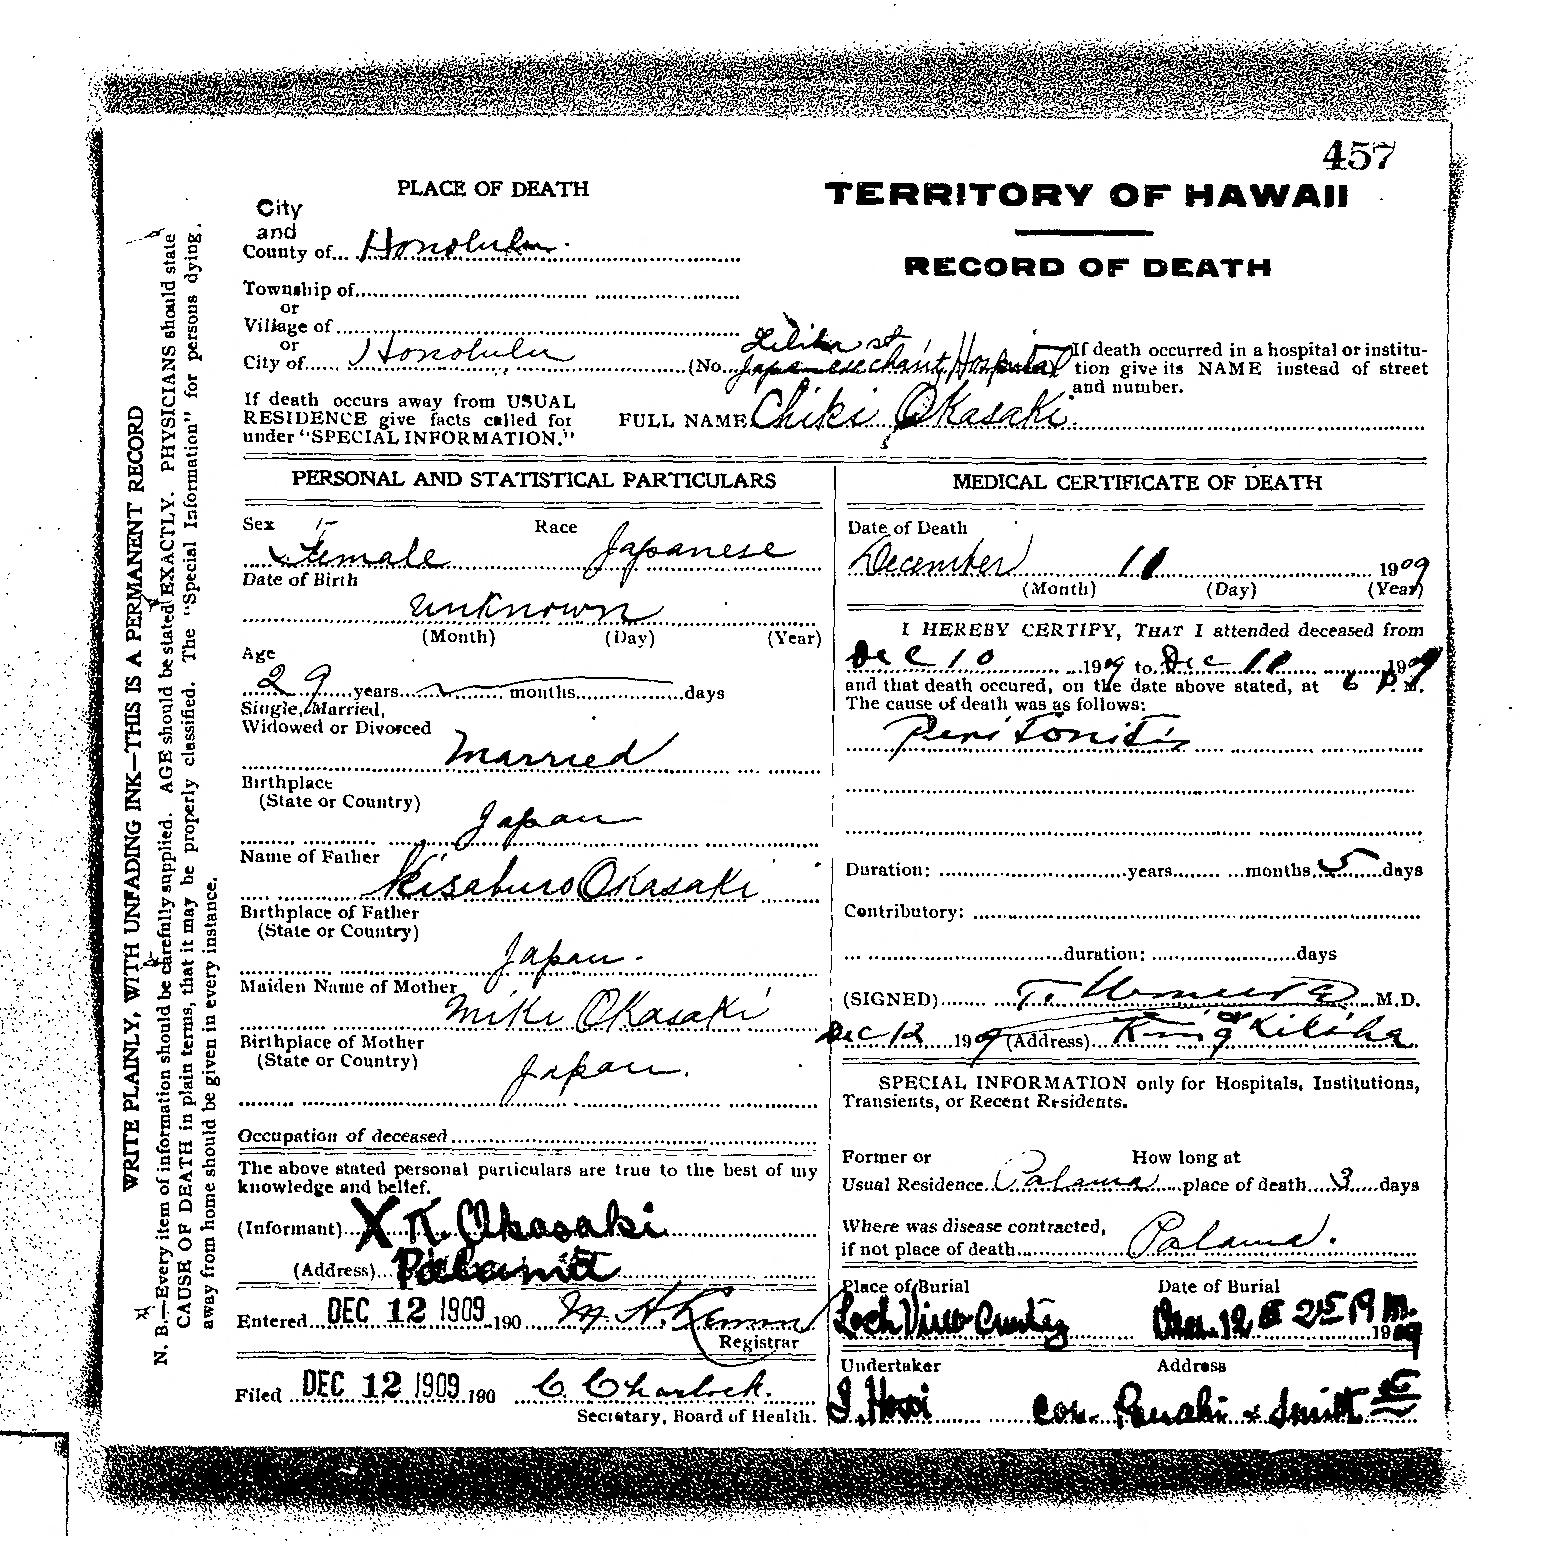 457
PLACE OF DEATH
TERRITORY OF HAWAII
RECORD OF DEATH
City
and
County of Honolulu.
Township of
or
Village of
or
City of Honolulu
Liliha st
(No. Japanese Charit Hospital
If death occurred in a hospital or institu-
tion give its NAME instead of street
and number.
If death occurs away from USUAL
RESIDENCE give facts called for
under "SPECIAL INFORMATION."
FULL NAME Chiki Okasaki.
PERSONAL AND STATISTICAL PARTICULARS
Sex Race
Female Japanese
Date of Birth
unknown
(Month) (Day) (Year)
Age
29 years months days
Single, Married,
Widowed or Divorced
Married
Birthplace
(State or Country)
Japan
Name of Father
Kisaburo Okasaki
Birthplace of Father
(State or Country)
Japan.
Maiden Name of Mother
Miki Okasaki
Birthplace of Mother
(State or Country)
Japan.
Occupation of deceased
The above stated personal particulars are true to the best of my
knowledge and belief.
(Informant) X K. Okasaki
(Address) Palama
Entered DEC 12 1909 190
Registrar
Filed DEC 12 1909 190 C. Charlock.
Secretary, Board of Health.
MEDICAL CERTIFICATE OF DEATH
Date of Death
December 11 1909
(Month) (Day) (Year)
I HEREBY CERTIFY, THAT I attended deceased from
Dec 10 1909 to Dec 11 1909
and that death occured, on the date above stated, at 6 P. M.
The cause of death was as follows:
Peritonitis
Duration: years months 5 days
Contributory:
duration: days
(SIGNED) T. M.D.
Dec 12 1909 (Address) King or Liliha
SPECIAL INFORMATION only for Hospitals, Institutions,
Transients, or Recent Residents.
Former or How long at
Usual Residence Palama place of death 3 days
Where was disease contracted,
if not place of death Palama.
Place of Burial Date of Burial
Loch View 12 P M.
1909
Undertaker Address
cor. & Smith
WRITE PLAINLY, WITH UNFADING INK—THIS IS A PERMANENT RECORD
N. B.—Every item of information should be carefully supplied. AGE should be stated EXACTLY. PHYSICIANS should state
CAUSE OF DEATH in plain terms, that it may be properly classified. The "Special Information" for persons dying
away from home should be given in every instance.